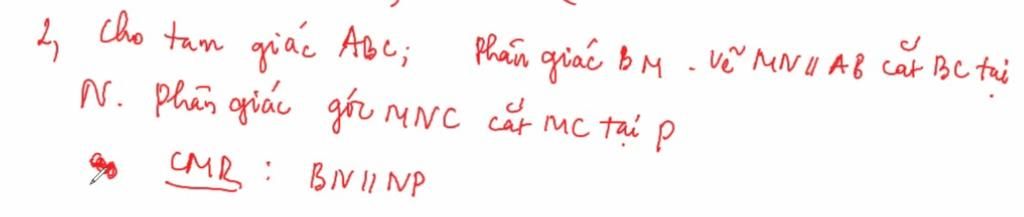 2, Cho tam giác ABC; Phân giác BM. Vẽ MN // AB cắt BC tại
N. Phân giác góc MNC cắt MC tại P
CMR: BN // NP